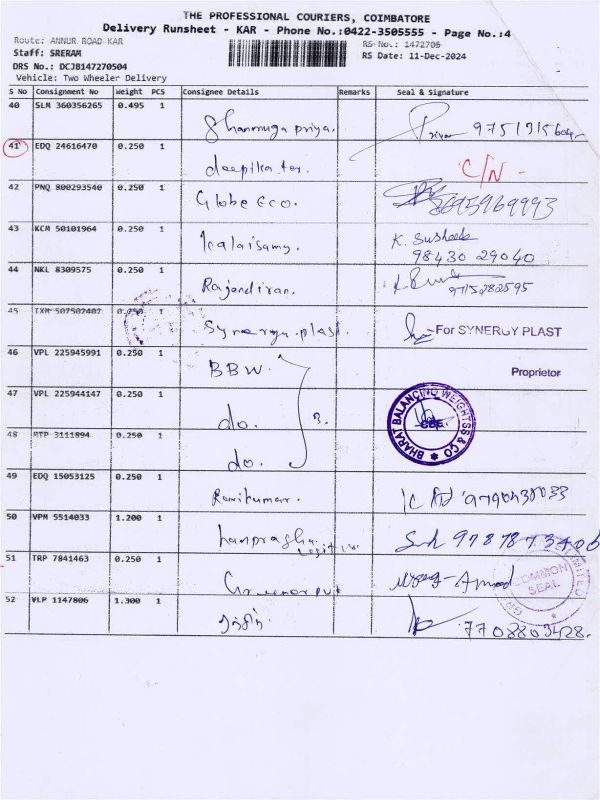 THE PROFESSIONAL COURIERS, COIMBATORE
Delivery Runsheet - KAR - Phone No.:0422-3505555 - Page No.:4
Route: ANNUR ROAD KAR
RS No.: 1472705
Staff: SRERAM
RS Date: 11-Dec-2024
DRS No.: DCJB147270504
Vehicle: Two Wheeler Delivery
S No Consignment No Weight PCS Consignee Details Remarks Seal & Signature
40 SLM 360356265 0.495 1 Shanmuga priya.
41 EDQ 24616470 0.250 1 deepika tex. C/N -
42 PNQ 800293540 0.250 1 Globe Eco. 8695969993
43 KCM 50101964 0.250 1 Kalaisamy. K. Susheela
98430 29040
44 NKL 8309575 0.250 1 Rajendiran. 9715282595
45 IXM 507502402 0.250 1 Synergy plast. For SYNERGY PLAST
Proprietor
46 VPL 225945991 0.250 1 BBW.
47 VPL 225944147 0.250 1 do. 3.
BHARAT BALANCING WEIGHTSS & CO
CBE
48 RTP 3111894 0.250 1 do.
49 EDQ 15053125 0.250 1 Ravikumar.
50 VPM 5514033 1.200 1
51 TRP 7841463 0.250 1
COMMON SEAL
52 VLP 1147806 1.300 1 7708803428.